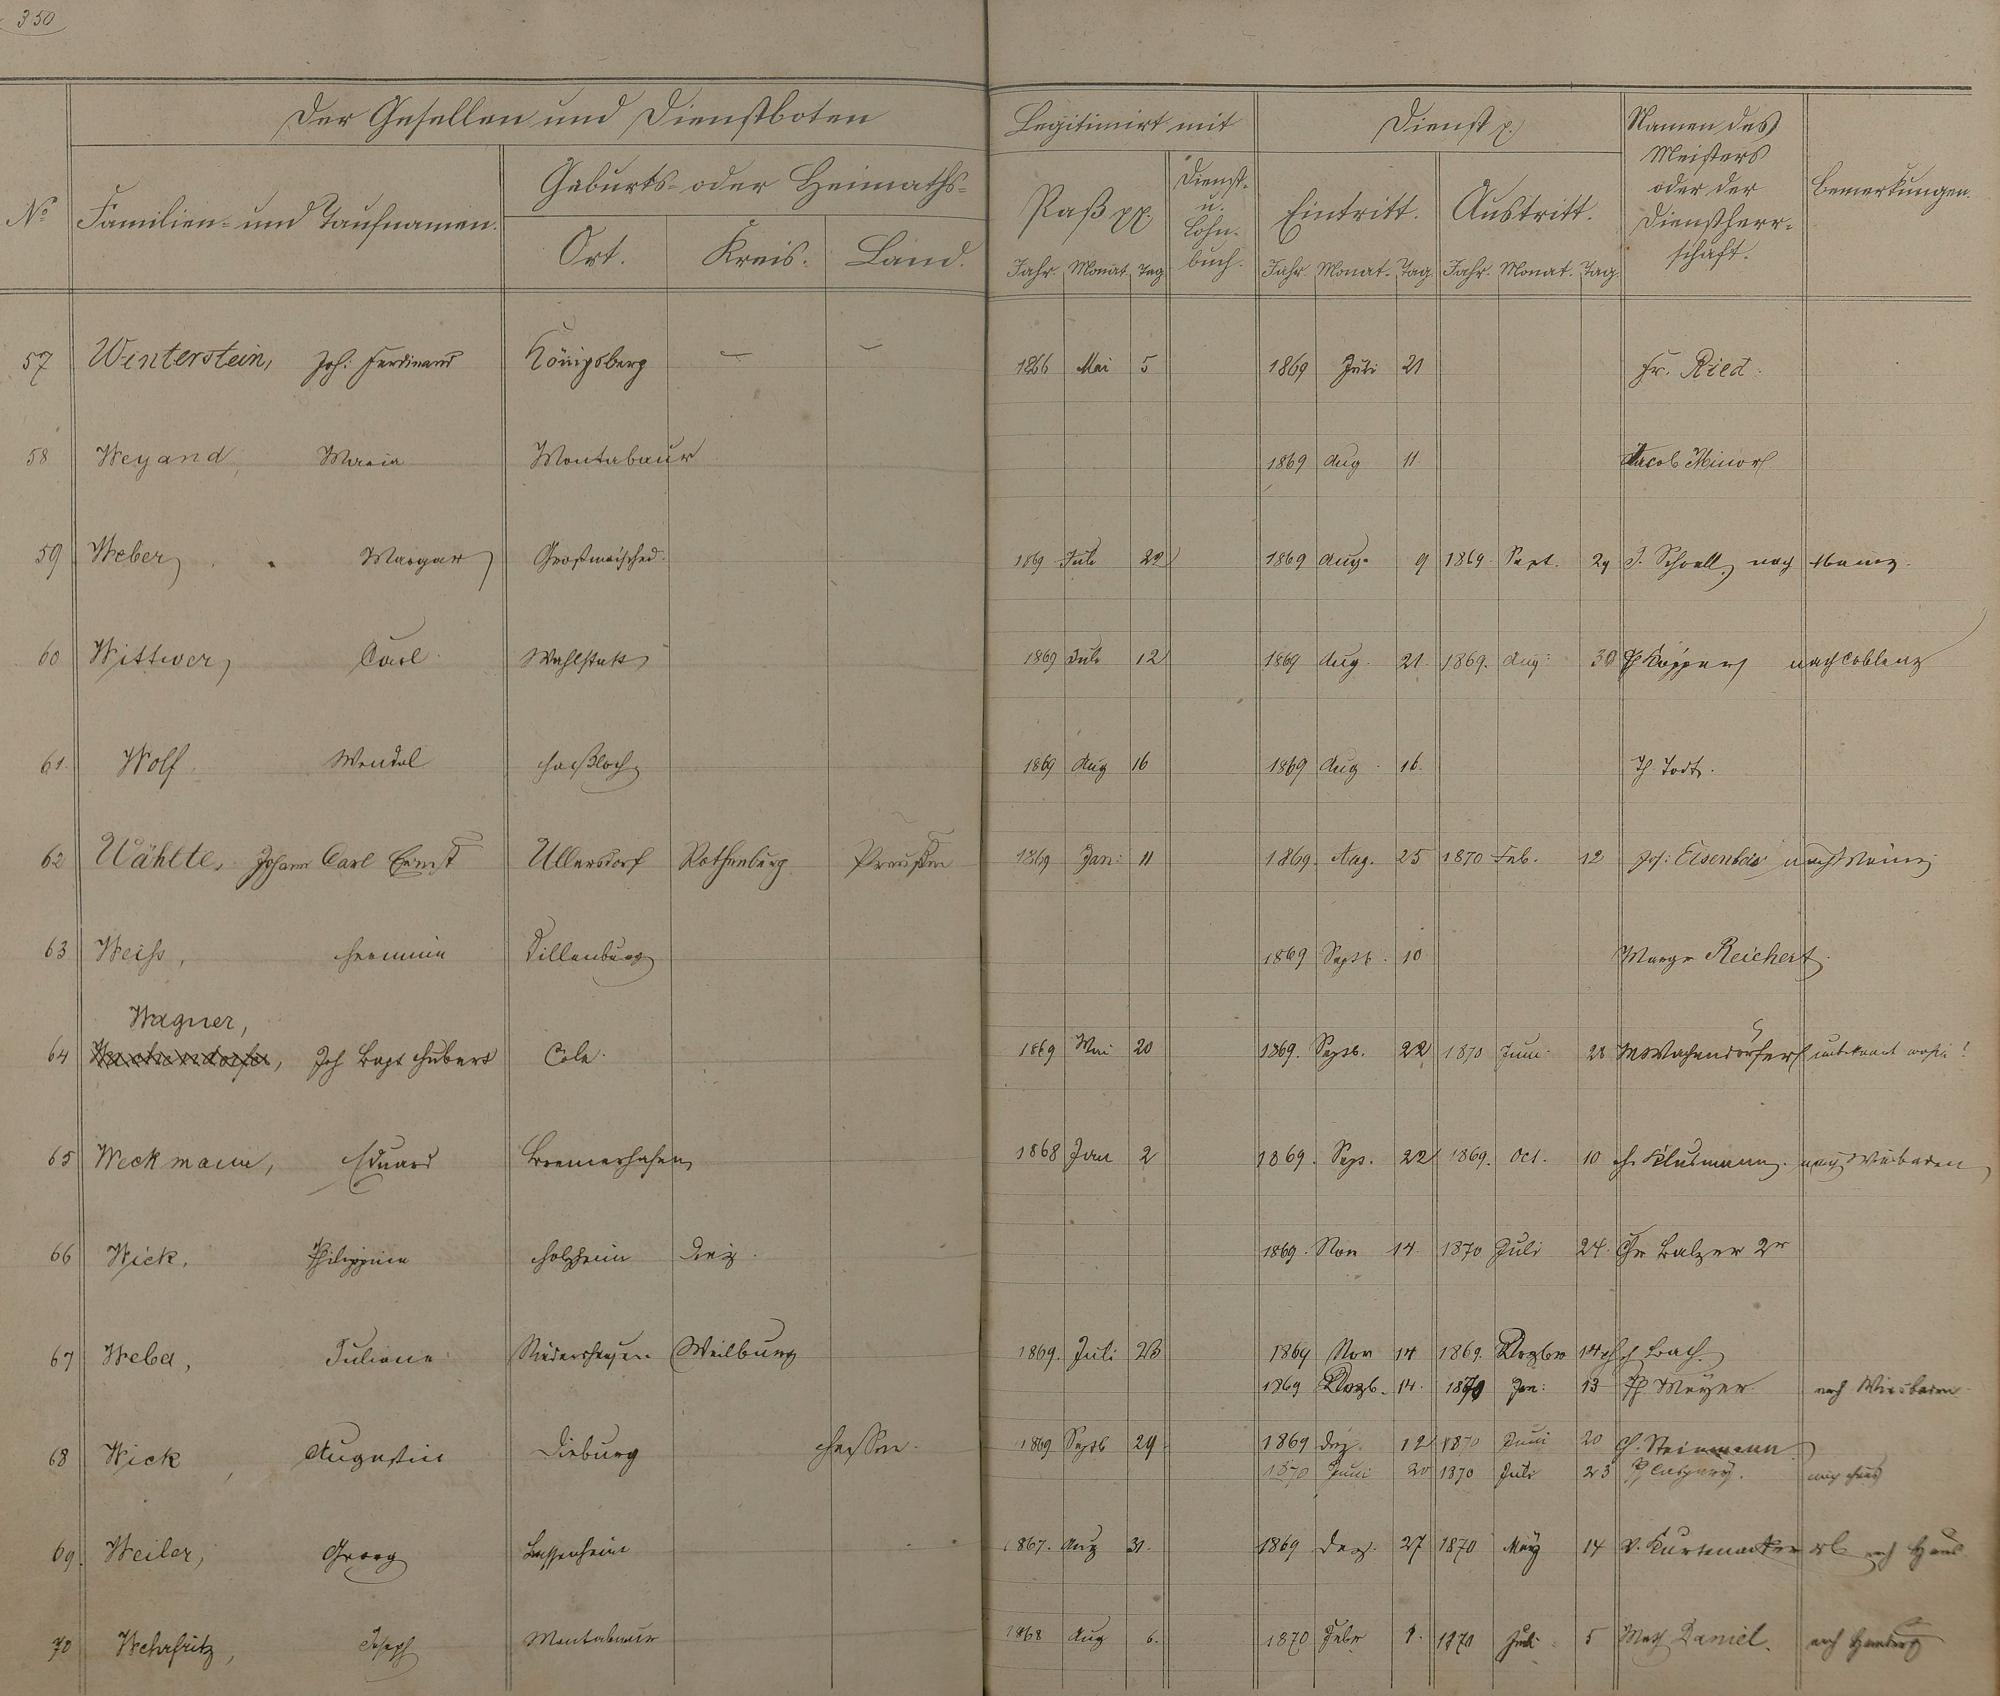 350
Der Gesellen und Dienstboten
Legitimirt mit
Dienst p.
Namen des Meisters oder der Dienstherrschaft.
Bemerkungen.
No
Familien- und Taufnamen.
Geburts- oder Heimaths-
Ort. Kreis. Land.
Paß pp.
Dienst- u. Lohn-buch.
Eintritt. Austritt.
Jahr. Monat. Tag. Jahr. Monat. Tag. Jahr. Monat. Tag.
57 Winterstein, Joh: Ferdinand Königsberg — — 1866 Mai 5 1869 Juli 21 Fr. Ried.
58 Weyand, Maria Montabaur 1869 Aug 11 Jacob Minor
59 Weber, Margar Großmaischeid 1869 Juli 22 1869 Aug. 9 1869. Sept. 29 J. Schroll, nach Mainz.
60 Wittwer, Carl Wahlstatt 1869 Juli 12 1869 Aug. 21 1869. Aug: 30 Küppers nach Coblenz
61. Wolf Wendel Haßloch 1869 Aug 16 1869 Aug. 16. Todt.
62 Wählte, Johann Carl Ernst Ullersdorf Rothenburg Preußen 1869 Jan: 11 1869. Aug. 25 1870 Feb. 12 Joh: Eisenbeis nach Mainz
63 Weiss, Hermine Dillenburg 1869 Septb. 10 Margr Reichert.
Wagner,
64 Joh Bapt Hubert Cöln. 1869 Mai 20 1869. Septb. 22 1870 Juni 28 M Wachendörfer unbekannt wohin!
65 Weckmann, Eduard Bremerhafen 1868 Jan 2 1869. Sep. 22 1869. Oct. 10 Klusmann. nach Wiesbaden
66 Wick, Philippine Holzheim Diez. 1869. Nov 14. 1870 Juli 24. Chr Balzer 2r
67 Weber, Juliane Niedershausen Weilburg 1869. Juli 23 1869 Nov 14 1869. Dezbr 14 Bach.
1869 Dezb. 14. 1870 Jan: 13 Ph Meyer nach Wiesbaden
68 Wick, Augustin Dieburg Hessen. 1869 Septb 29 1869 Dez. 12 1870 Juni 20 Steinmann
1870 Juni 20 1870 Juli 23 Ph Caspary. nach Haus
69. Weiler, Georg Bassenheim 1867. Aug 31. 1869 Dez. 27 1870 May 14 V. Kurtenacker nach Haus
70 Wehrfritz, Joseph Montabaur 1868 Aug 6. 1870 Febr 1. 1870 Juli 5 Math Daniel. nach Homburg